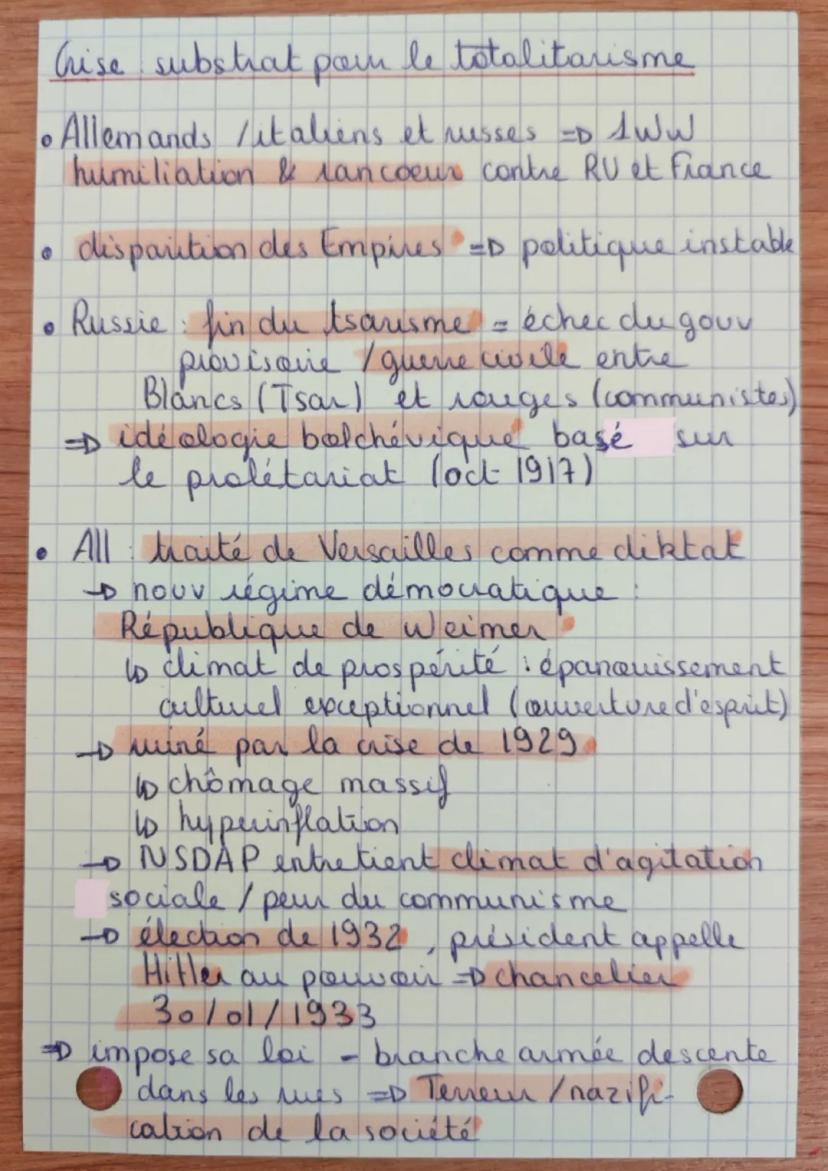 Crise : substrat pour le totalitarisme
• Allemands / italiens et russes => 1WW
humiliation & rancoeur contre RU et France
• disparition des Empires => politique instable
• Russie : fin du tsarisme = échec du gouv
provisoire / guerre civile entre
Blancs (Tsar) et rouges (communistes)
=> idéologie bolchévique basé sur
le prolétariat (oct 1917)
• All : traité de Versailles comme diktat
→ nouv régime démocratique :
République de Weimer
↳ climat de prospérité : épanouissement
culturel exceptionnel (ouverture d'esprit)
→ miné par la crise de 1929
↳ chômage massif
↳ hyperinflation
→ NSDAP entretient climat d'agitation
sociale / peur du communisme
→ élection de 1932, président appelle
Hitler au pouvoir => chancelier
30/01/1933
=> impose sa loi - branche armée descente
dans les rues => Terreur / nazifi-
cation de la société